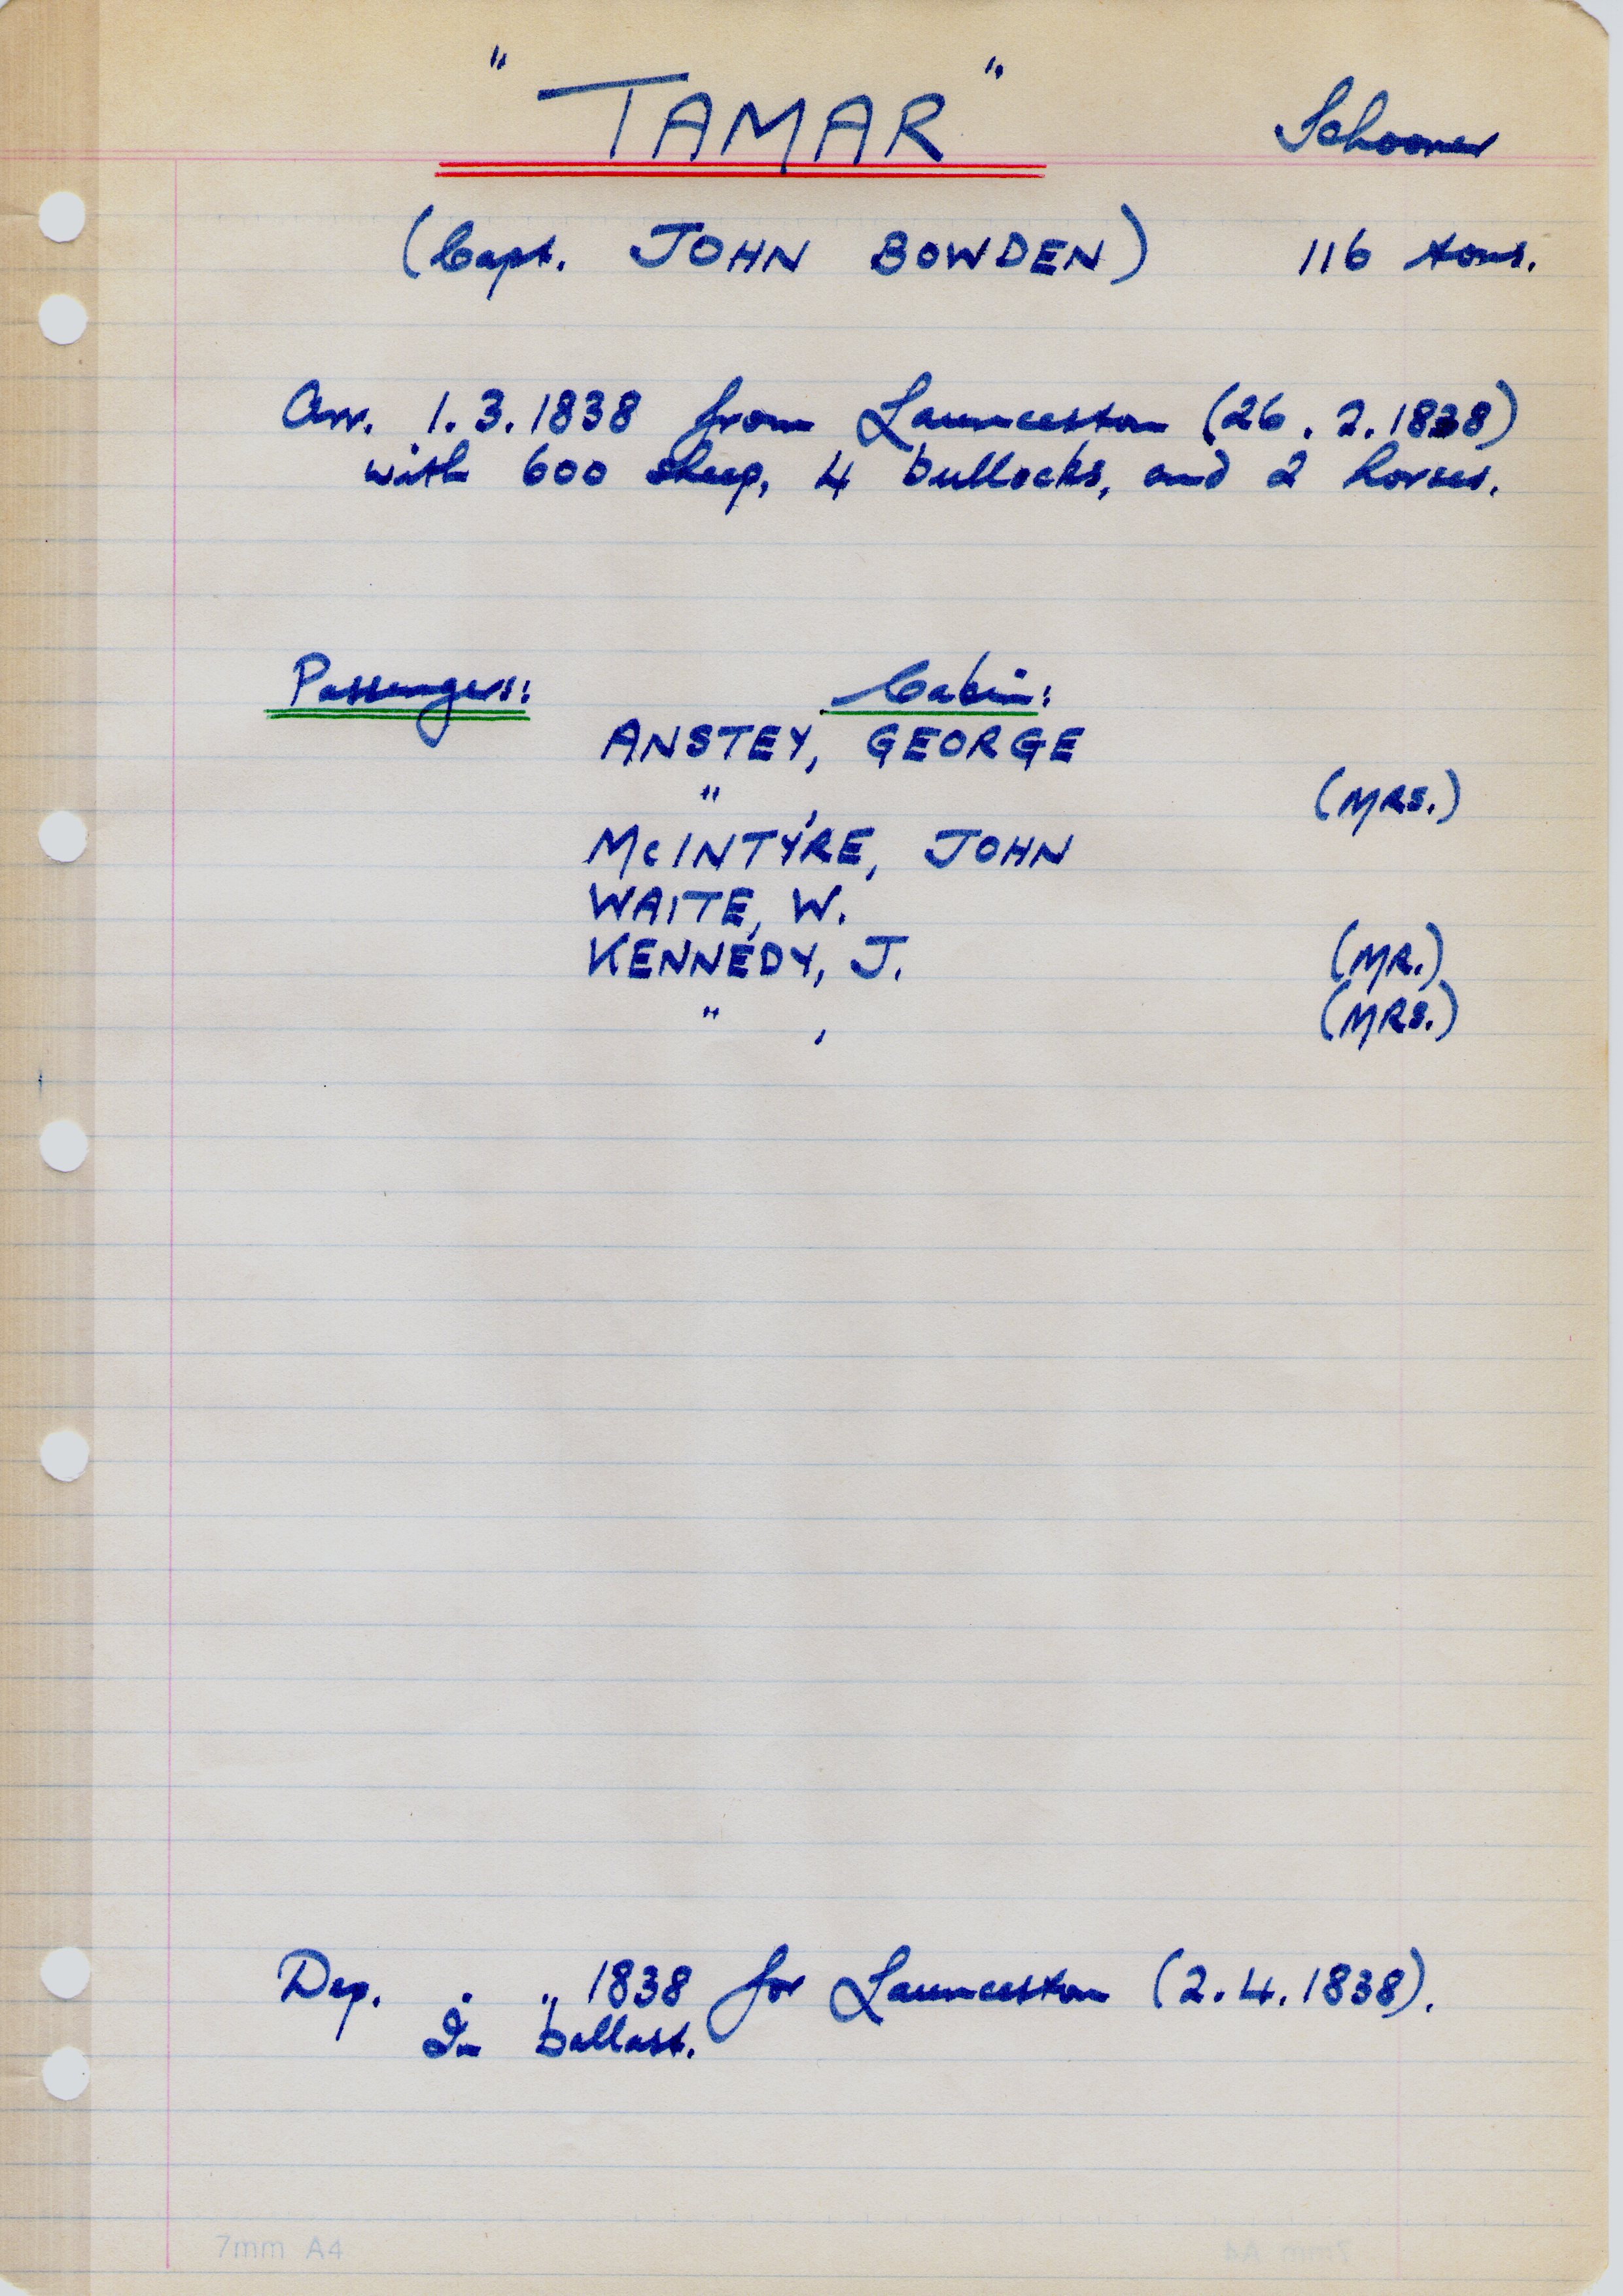 "TAMAR" Schooner
(Capt. JOHN BOWDEN) 116 tons.
Arr. 1.3.1838 from Launceston (26.2.1838)
with 600 sheep, 4 bullocks, and 2 horses.
Passengers: Cabin:
ANSTEY, GEORGE
" , (MRS.)
McINTYRE, JOHN
WAITE, W.
KENNEDY, J. (MR.)
" , (MRS.)
Dep. . .. 1838 for Launceston (2.4.1838).
In ballast.
7mm A4
7mm A4